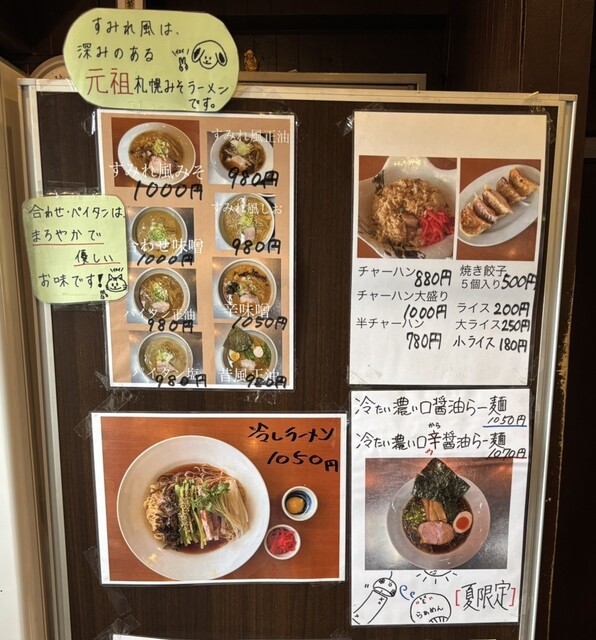 すみれ風は、
深みのある
元祖札幌みそラーメン
です。
すみれ風みそ
1000円
すみれ風正油
980円
合わせ・パイタンは、
まろやかで
優しい
お味です!
合わせ味噌
1000円
すみれ風しお
980円
パイタン正油
980円
辛味噌
1050円
パイタン塩
980円
昔風正油
980円
チャーハン 880円
チャーハン大盛り
1000円
半チャーハン
780円
焼き餃子
5個入り 500円
ライス 200円
大ライス 250円
小ライス 180円
冷しラーメン
1050円
冷たい濃い口醤油らー麺
1050円
から
冷たい濃い口辛醤油らー麺
1070円
らぁめん
[夏限定]